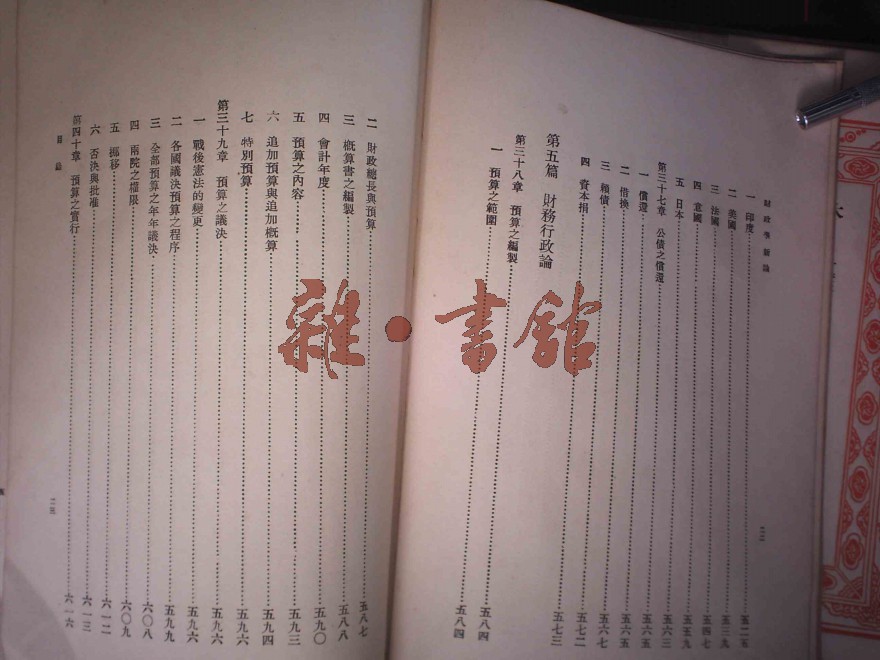 財政學新論
一 印度……五二五
二 美國……五三九
三 法國……五四七
四 意國……五五九
五 日本……五六三
第三十七章 公債之償還……五六五
一 償還……五六五
二 借換……五六五
三 賴債……五六七
四 資本捐……五七二
第五篇 財務行政論……五七三
第三十八章 預算之編製……五八四
一 預算之範圍……五八四
二 財政總長與預算……五八七
三 概算書之編製……五八八
四 會計年度……五九〇
五 預算之內容……五九三
六 追加預算與追加概算……五九四
七 特別預算……五九六
第三十九章 預算之議決
一 戰後憲法的變更……五九六
二 各國議決預算之程序……五九九
三 全部預算之年年議決……六〇八
四 兩院之權限……六〇九
五 挪移……六一二
六 否決與批准……六一三
第四十章 預算之實行……六一六
目錄
雜·書館